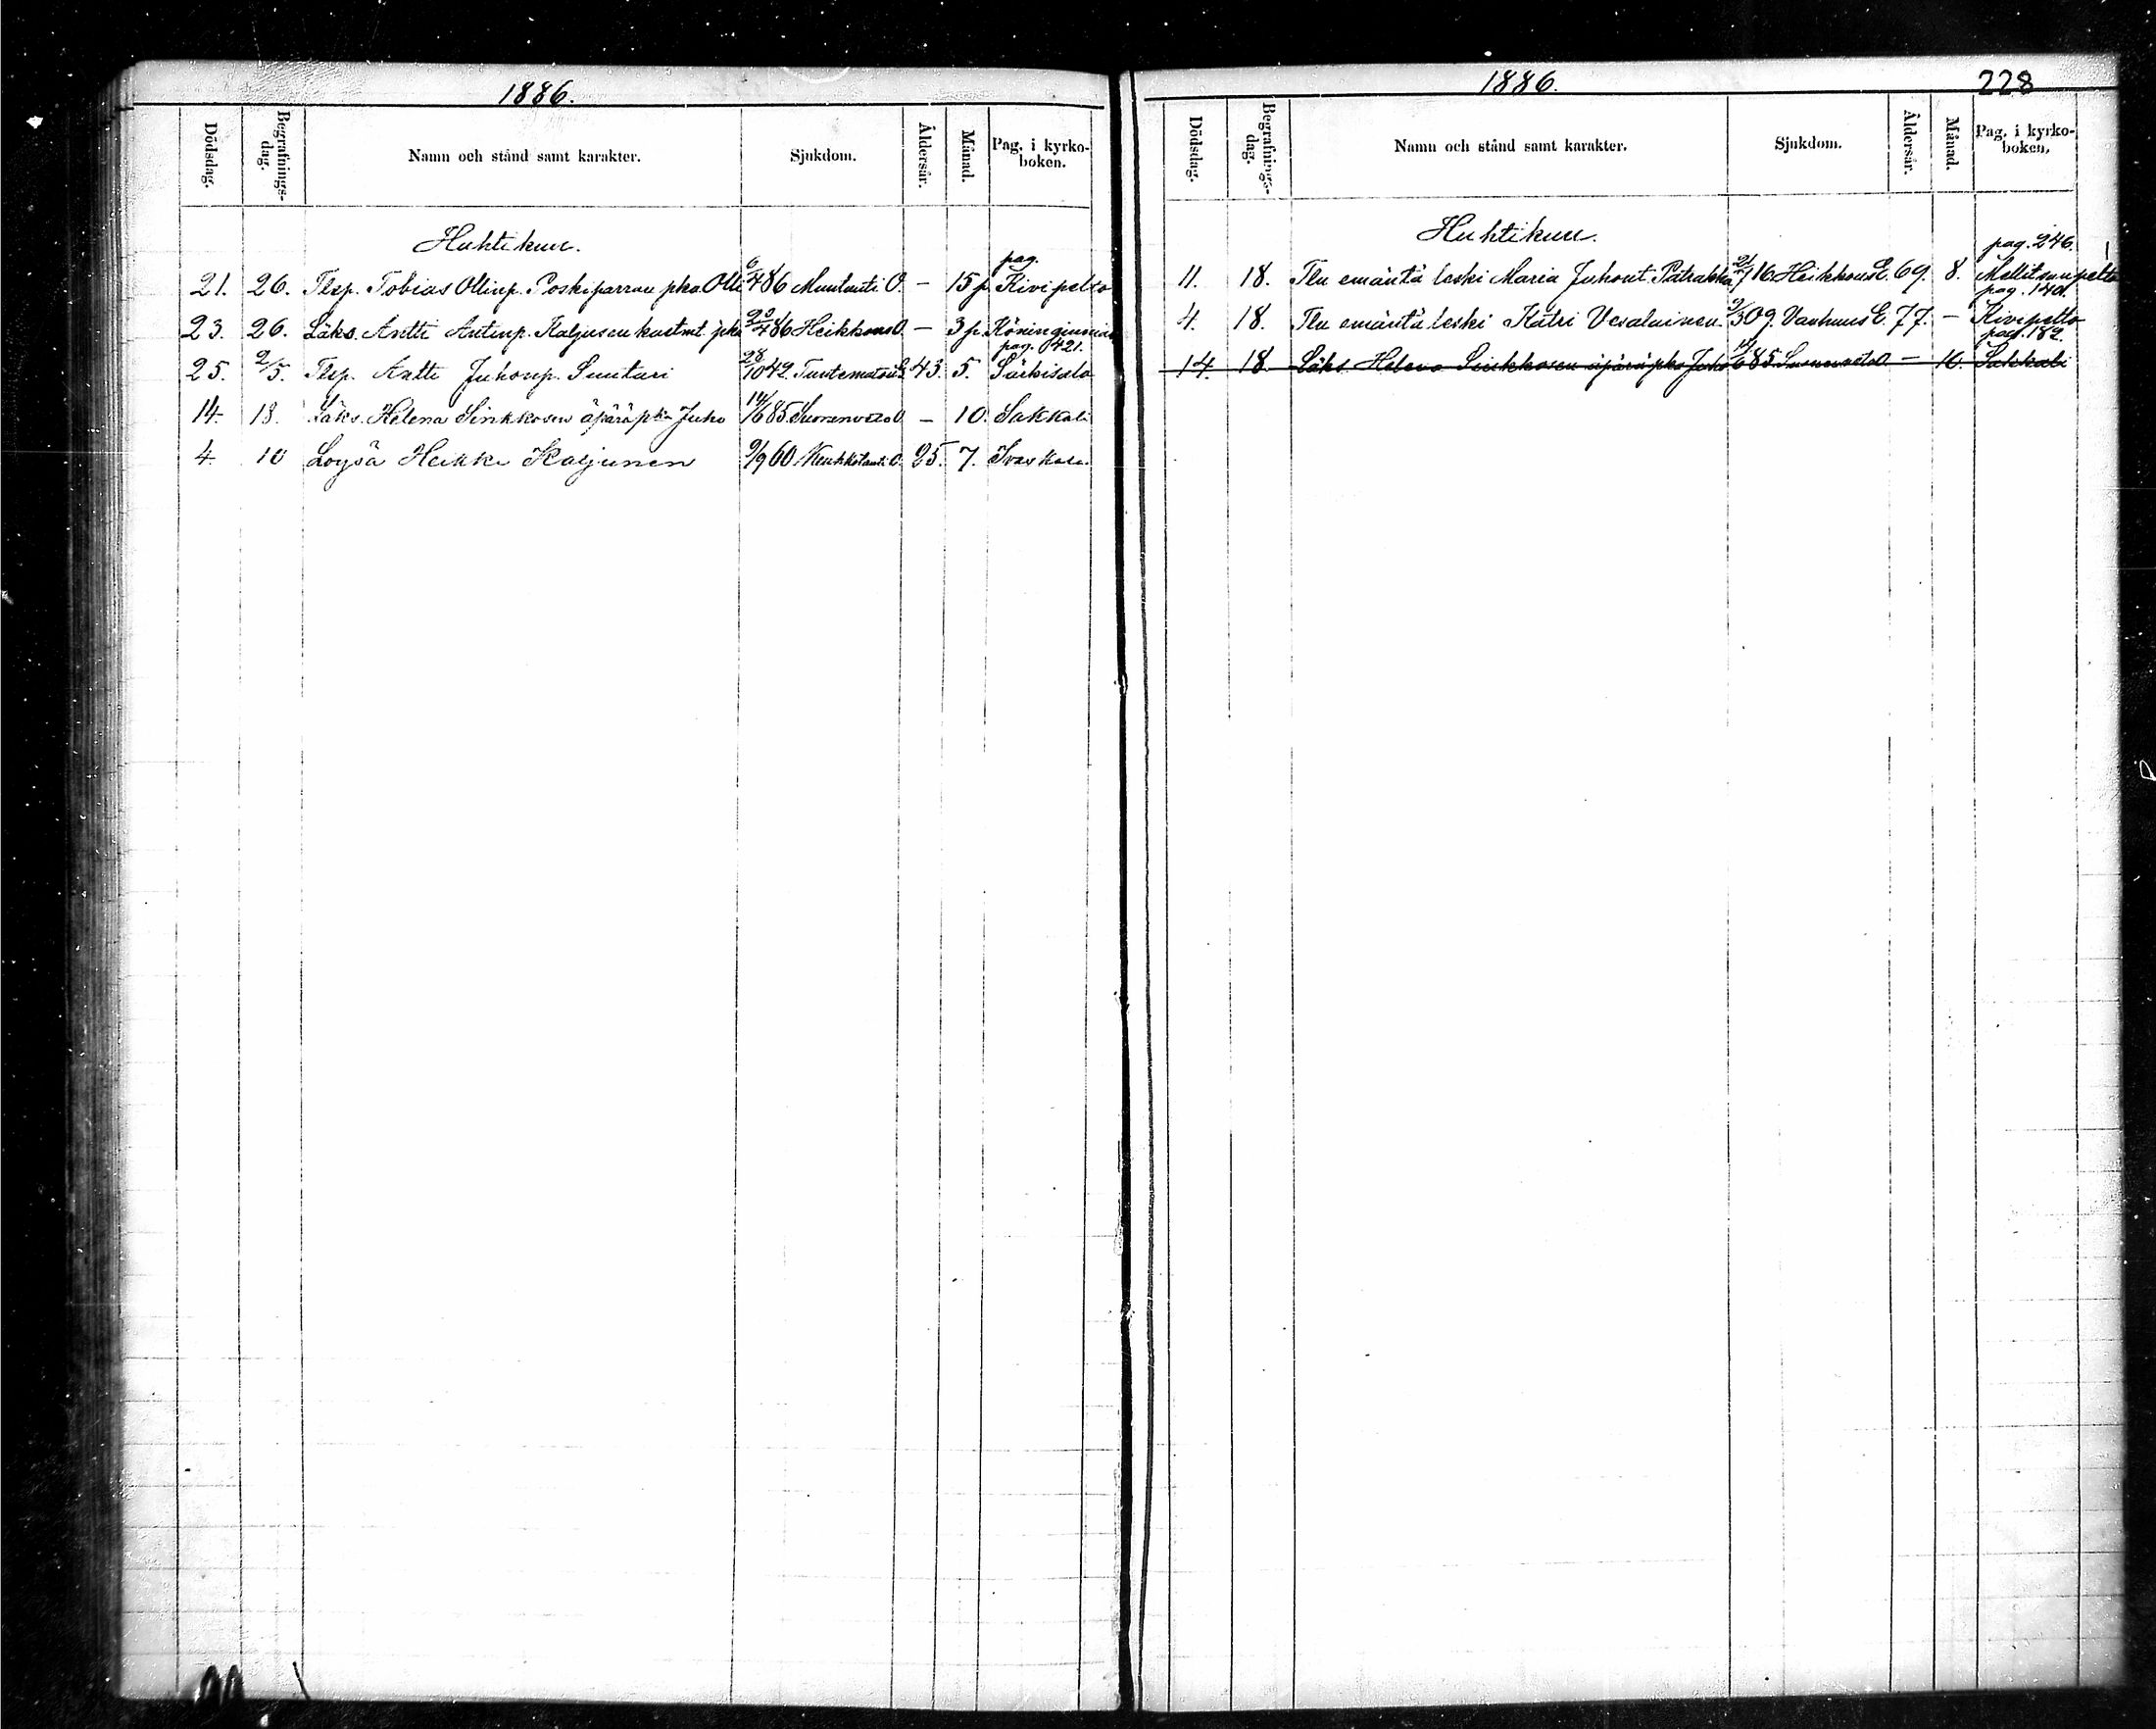 1886.
Dödsdag. Begrafnings-dag. Namn och stånd samt karakter. Sjukdom. Åldersår. Månad. Pag. i kyrko-boken.
Huhtikuu.
pag.
21. 26. Tlsp. Tobias Ollinp. Poskiparran pka Olli 6/4 86 Muutauti O. — 15 p. Kivipelto
23. 26. Läks. Antti Antinp. Kaljusen kastmt. pka 20/4 86 Heikkous O. — 3 p.
pag. 421.
25. 2/5. Tlsp. Antti Juhonp. Suutari 28/10 42. Tuntematoin E. 43. 5. Särkisalo
14. 18. Läks. Helena Sinkkosen äpärä pka Juho 14/6 85. Suonenveto O. — 10. Sakkali
4. 10 Loysä Heikki Kaljunen 9/9 60 Keuhkotauti O. 25. 7.
1886. 228
Dödsdag. Begrafnings-dag. Namn och stånd samt karakter. Sjukdom. Åldersår. Månad. Pag. i kyrko-boken.
Huhtikuu.
pag. 246.
11. 18. Tln emäntä leski Maria Juhont. Patrakka 21/7 16. Heikkous E. 69. 8.
pag. 140.
4. 18. Tln emäntä leski Katri Vesalainen. 2/3 09. Vanhuus E. 77. — Kivipelto
pag. 182.
14. 18. Läks. Helena Sinkkosen äpärä pka Juho 14/6 85. Suonenveto O — 10. Sakkali